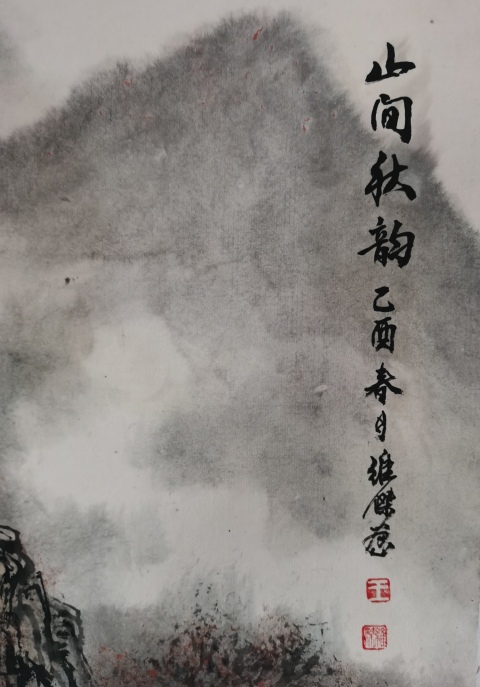 山间秋韵乙酉春月维杰
王